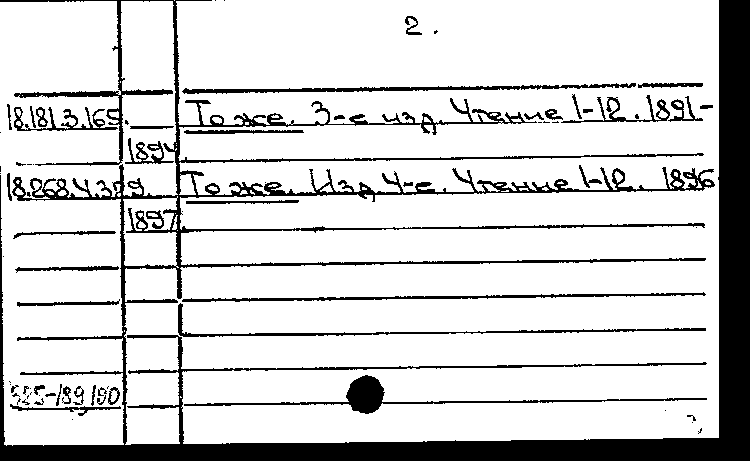 2.
18.181.3.165. То же. 3-е изд. Чтение 1-12. 1891-
1894.
18.268.4.329. То же. Изд 4-е. Чтение 1-12. 1896-
1897.
525-189/90